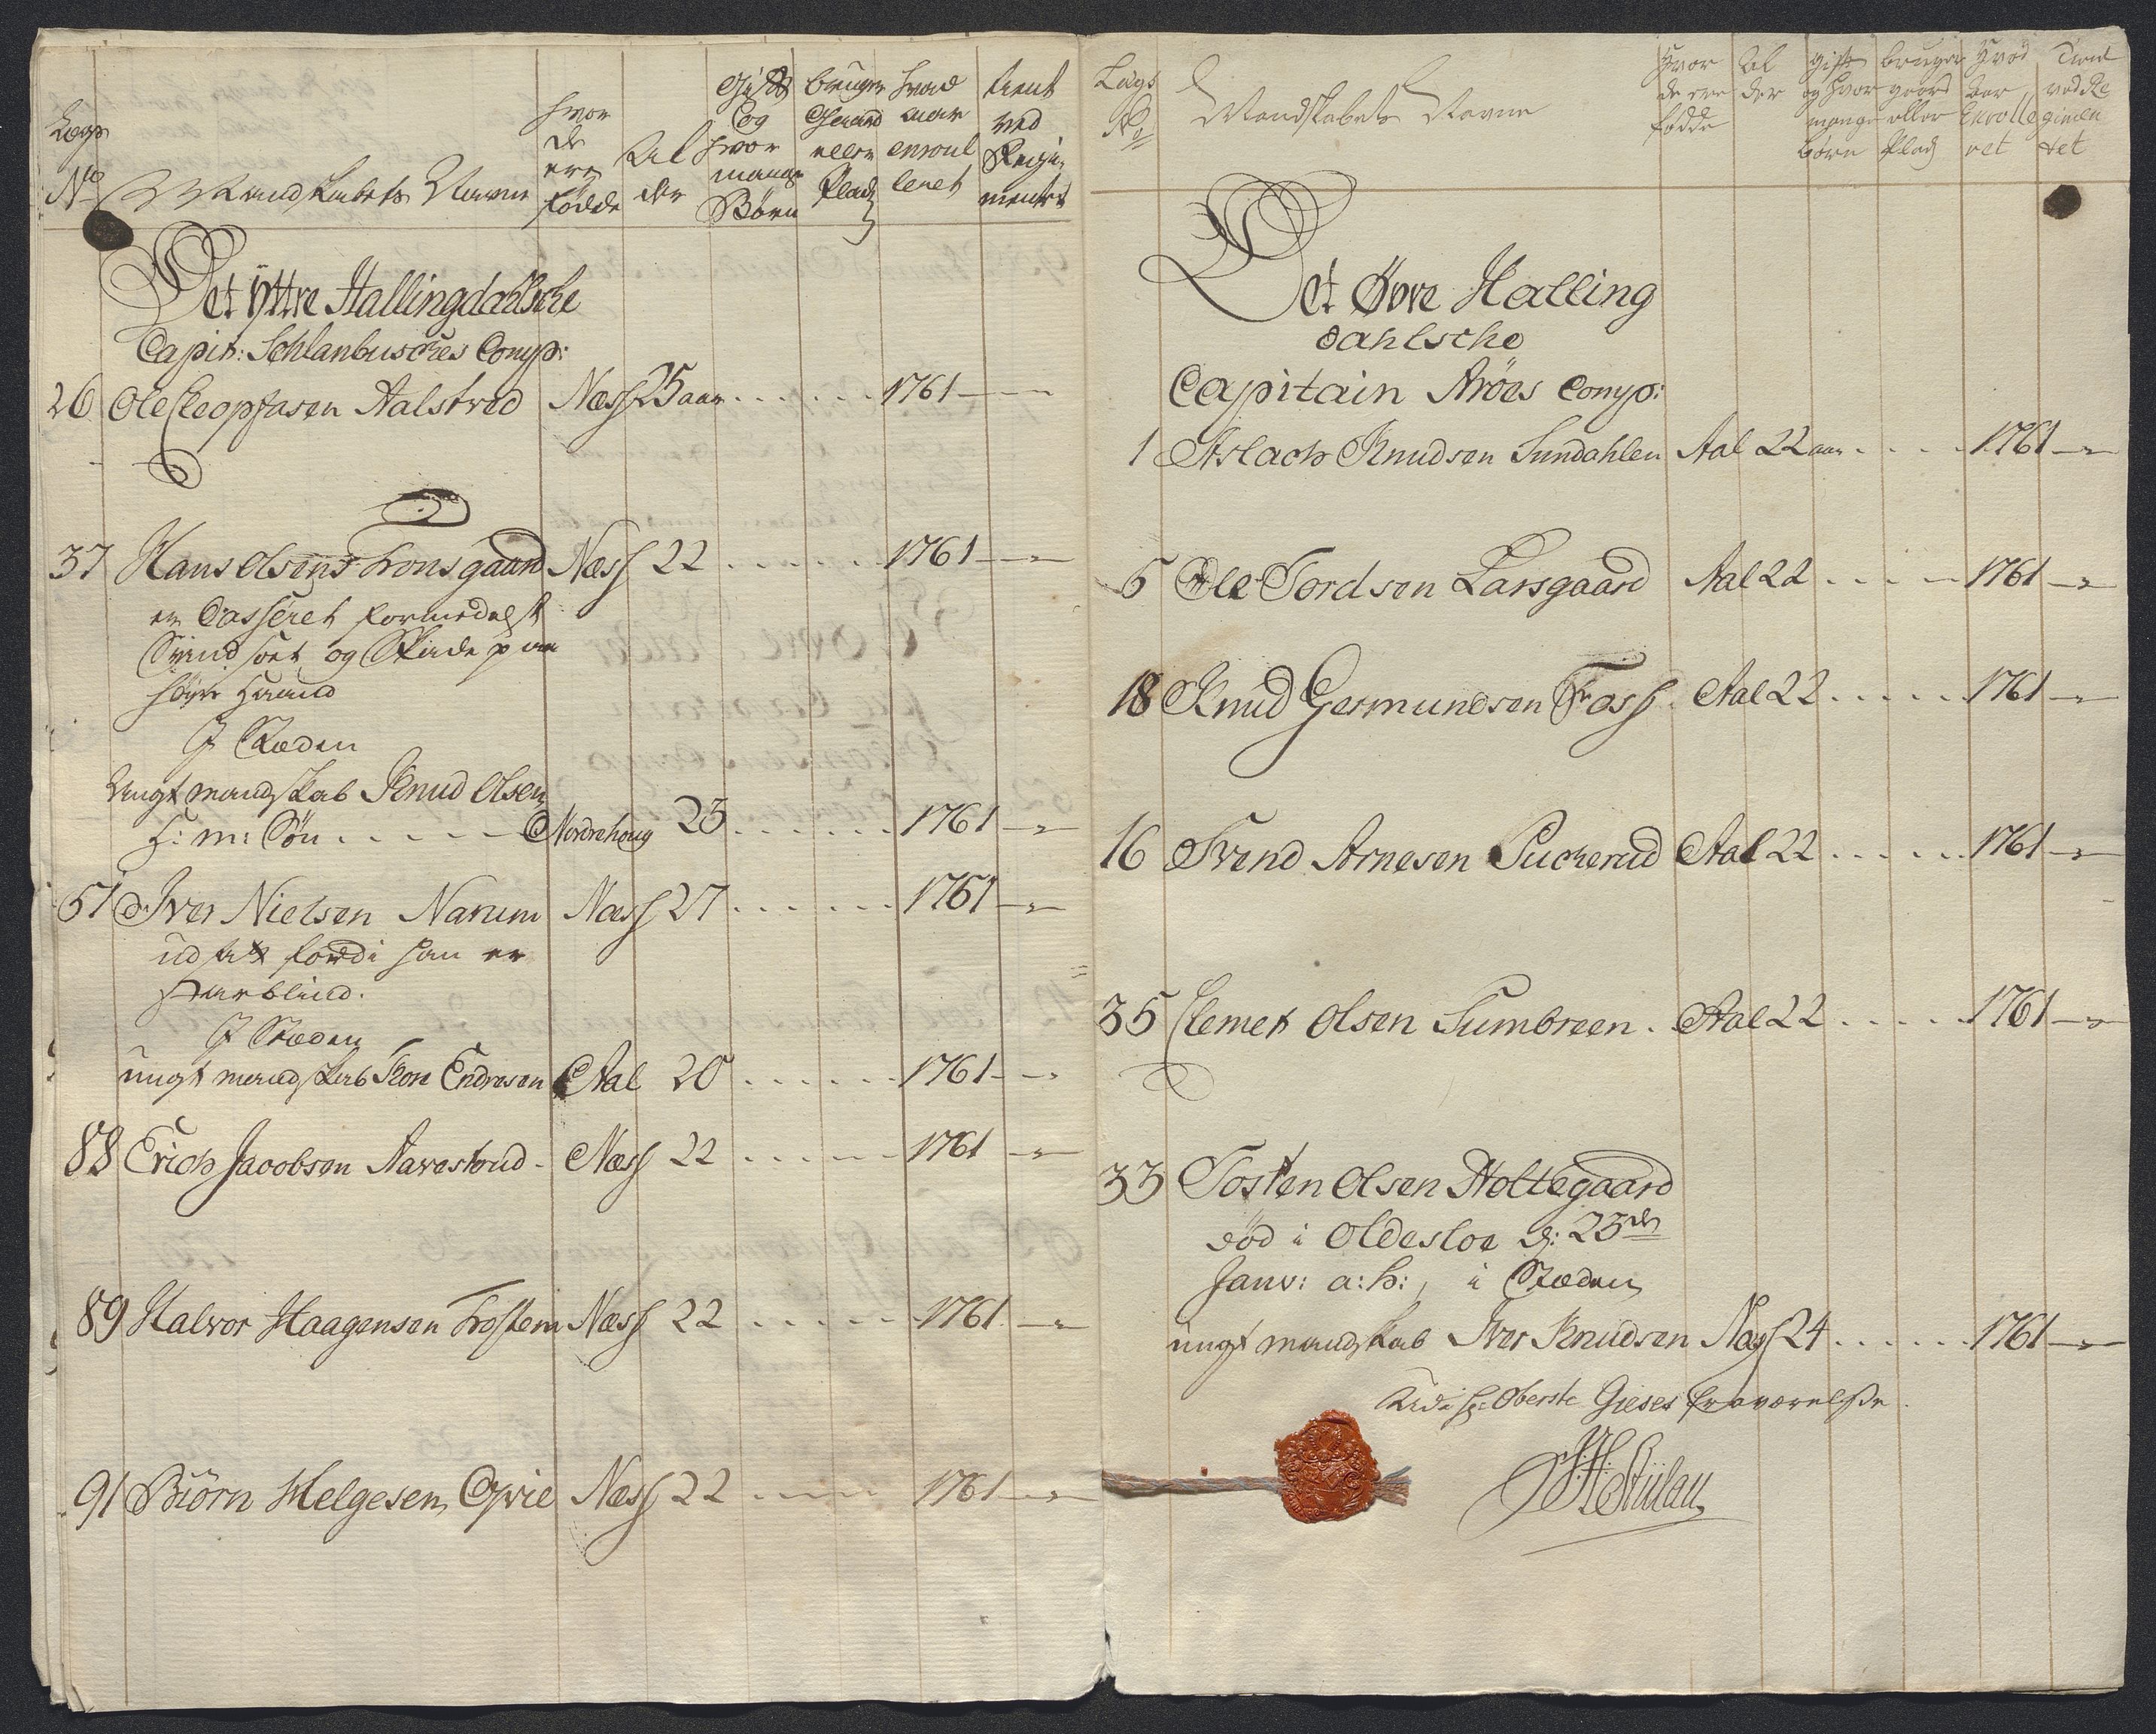 Lægs No
Mandskabets Navne
Hvor de ere fødde
Alder
Gifte Og hvor mange Børn
bruger Gaard eller Pladz
hvad aar enroulleret
tient ved Regimentet
Det Yttre Hallingdahlsche
Capit: Schlanbusches Comp:
26 Ole Cleophasen Aalstved Næss 25 aar . . . . . . . 1761 —
37 Hans Olsen Tronsgaard Næss 22 . . . . . . . 1761 —
er Casseret formedelst
Svindsoet og Skade paa
høyre Haand
J Stæden
Ungt mandskab Knud Olsen
H: m: Søn . . . . . Nordrehoug 23 . . . . . . . 1761 —
51 Iver Nielsen Narum Næss 27 . . . . . . . 1761 —
udsatt fordi han er
starblind.
J Stæden
ungt mandskab Tore Endresen Aal 20 . . . . . . . 1761 —
88 Erich Jacobsen Aavestrud - Næss 22 . . . . . . 1761 —
89 Halvor Haagensen Trostem Næss 22 . . . . . . 1761 —
91 Biörn Helgesen Opie Næss 22 . . . . . 1761 —
Lægs No
Mandskabets Navne
Hvor de ere fødde
Alder
gift og hvor mange børn
bruger gaard eller Pladz
Hvad Aar Enrolleret
Tient ved Regimentet
Det Øvre Halling
dahlsche
Capitain Aröes Comp:
1 Aslach Knudsen Sundahlen Aal 22 aar . . . . 1761 —
5 Ole Tordsen Larsgaard Aal 22 . . . . 1761 —
18 Knud Germundsen Foss . Aal 22 . . . . . 1761 —
16 Svend Arnesen Lucherud Aal 22 . . . . . . 1761 —
35 Clemet Olsen Sumbreen . Aal 22 . . . . . 1761 —
33 Tosten Olsen Holtegaard
død i Oldesloe d: 23de
Janv: a: h:, i Stæden
ungt mandskab Iver Knudsen Næss 24 . . . . . . 1761 —
Udi Hr: Oberste Gieses fraværelsse.